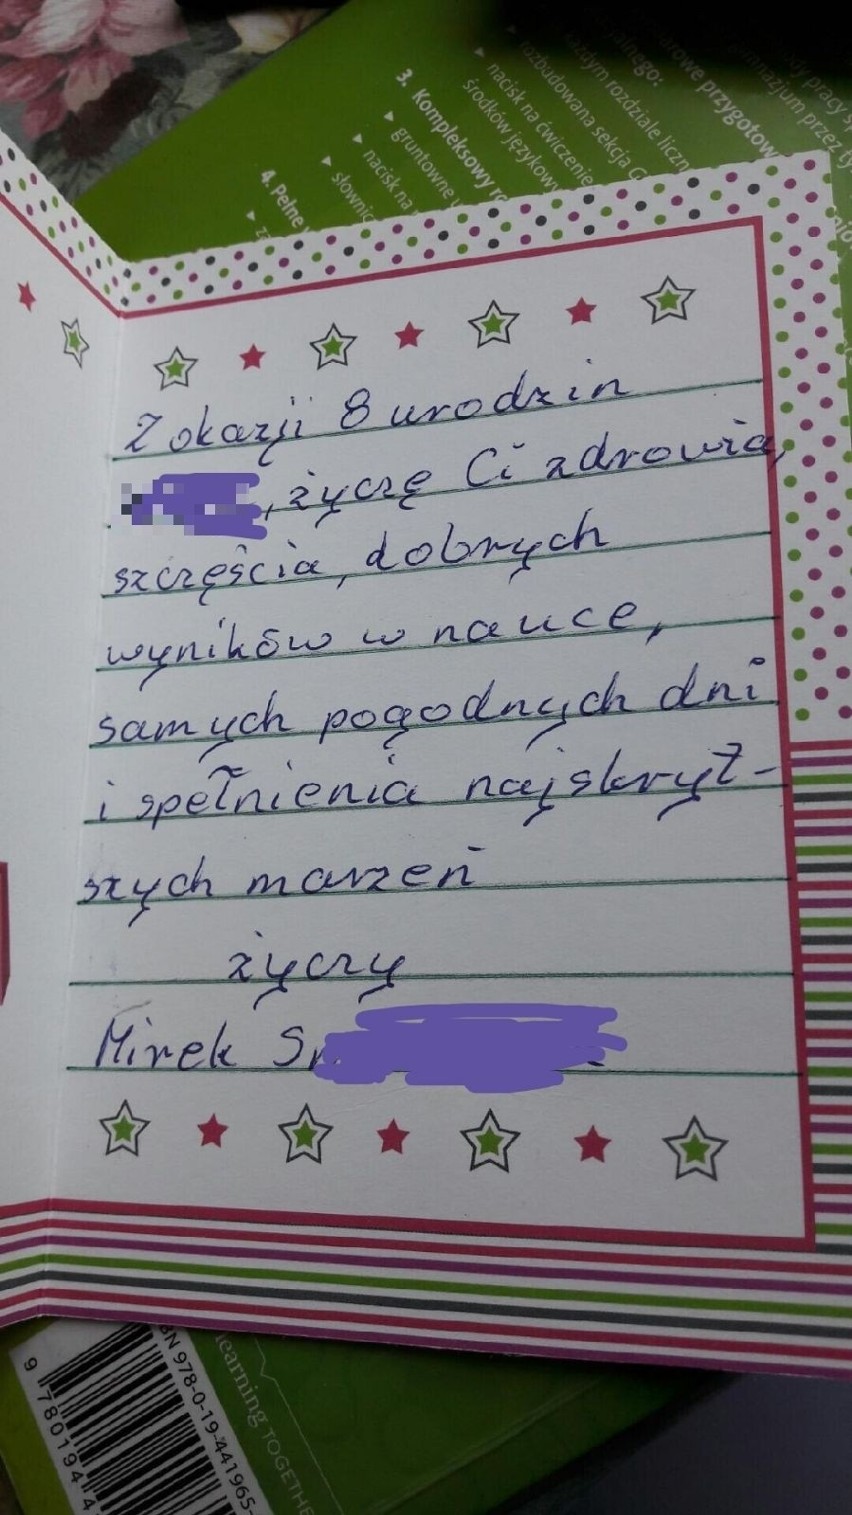 3. Kompleksowy
gruntowne
nacisk na
4. Pełne
nacisk na ćwiczenie
środków językow
rozbudowana sekcja
każdym rozdziale liczn
Z okazji 8 urodzin
, życzę Ci zdrowia,
szczęścia, dobrych
wyników w nauce,
samych pogodnych dni
i spełnienia najskryt-
szych marzeń
życzy
Mirek
learning TOGETHE
N 978-0-19-441965-
9 780194 4